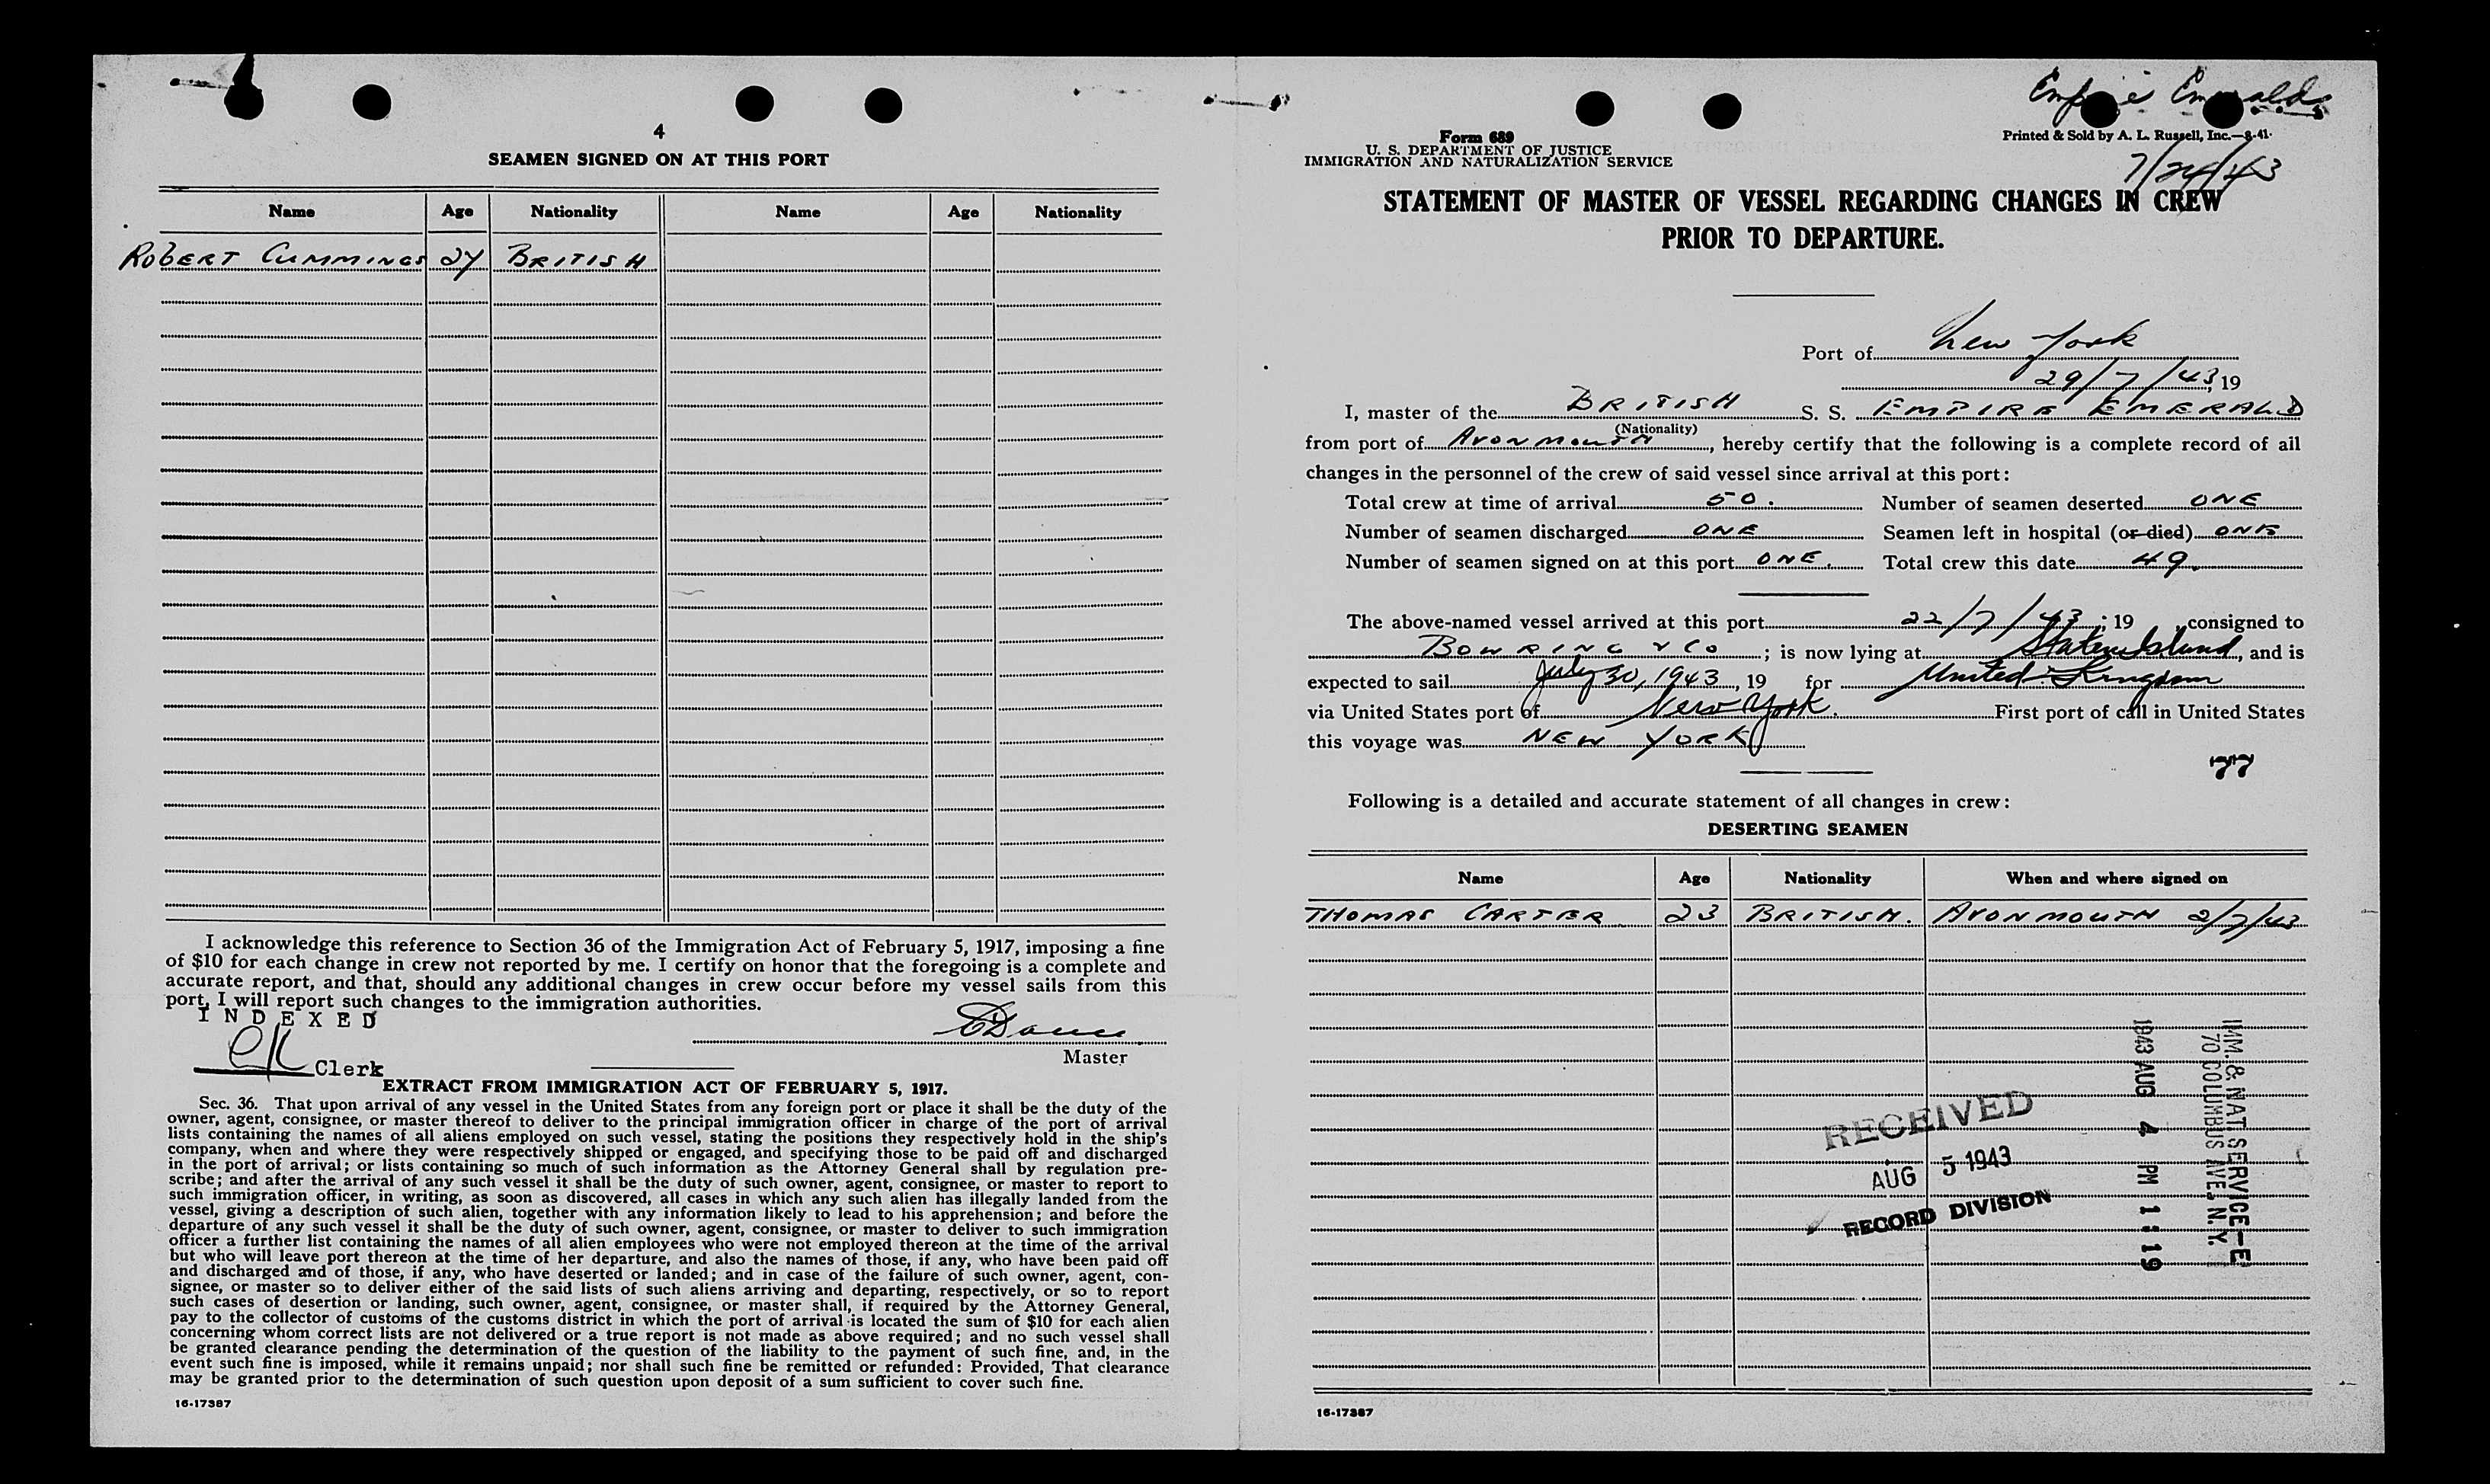 4
SEAMEN SIGNED ON AT THIS PORT
Name Age Nationality Name Age Nationality
ROBERT CUMMINGS 27 BRITISH
I acknowledge this reference to Section 36 of the Immigration Act of February 5, 1917, imposing a fine
of $10 for each change in crew not reported by me. I certify on honor that the foregoing is a complete and
accurate report, and that, should any additional changes in crew occur before my vessel sails from this
port, I will report such changes to the immigration authorities.
INDEXED
Master
Clerk
EXTRACT FROM IMMIGRATION ACT OF FEBRUARY 5, 1917.
Sec. 36. That upon arrival of any vessel in the United States from any foreign port or place it shall be the duty of the
owner, agent, consignee, or master thereof to deliver to the principal immigration officer in charge of the port of arrival
lists containing the names of all aliens employed on such vessel, stating the positions they respectively hold in the ship's
company, when and where they were respectively shipped or engaged, and specifying those to be paid off and discharged
in the port of arrival; or lists containing so much of such information as the Attorney General shall by regulation pre-
scribe; and after the arrival of any such vessel it shall be the duty of such owner, agent, consignee, or master to report to
such immigration officer, in writing, as soon as discovered, all cases in which any such alien has illegally landed from the
vessel, giving a description of such alien, together with any information likely to lead to his apprehension; and before the
departure of any such vessel it shall be the duty of such owner, agent, consignee, or master to deliver to such immigration
officer a further list containing the names of all alien employees who were not employed thereon at the time of the arrival
but who will leave port thereon at the time of her departure, and also the names of those, if any, who have been paid off
and discharged and of those, if any, who have deserted or landed; and in case of the failure of such owner, agent, con-
signee, or master so to deliver either of the said lists of such aliens arriving and departing, respectively, or so to report
such cases of desertion or landing, such owner, agent, consignee, or master shall, if required by the Attorney General,
pay to the collector of customs of the customs district in which the port of arrival is located the sum of $10 for each alien
concerning whom correct lists are not delivered or a true report is not made as above required; and no such vessel shall
be granted clearance pending the determination of the question of the liability to the payment of such fine, and, in the
event such fine is imposed, while it remains unpaid; nor shall such fine be remitted or refunded: Provided, That clearance
may be granted prior to the determination of such question upon deposit of a sum sufficient to cover such fine.
16-17387
Empire Emerald
Form 689
Printed & Sold by A. L. Russell, Inc.—8-41-
U. S. DEPARTMENT OF JUSTICE
IMMIGRATION AND NATURALIZATION SERVICE
7/24/43
STATEMENT OF MASTER OF VESSEL REGARDING CHANGES IN CREW
PRIOR TO DEPARTURE.
Port of New York
29/7/43, 19
I, master of the BRITISH S. S. EMPIRE EMERALD
(Nationality)
from port of Avonmouth, hereby certify that the following is a complete record of all
changes in the personnel of the crew of said vessel since arrival at this port:
Total crew at time of arrival 50. Number of seamen deserted ONE
Number of seamen discharged ONE Seamen left in hospital (or died) ONE
Number of seamen signed on at this port ONE. Total crew this date 49.
The above-named vessel arrived at this port 22/7/43; 19 , consigned to
BOWRING & Co; is now lying at Staten Island, and is
expected to sail July 30, 1943, 19 for United Kingdom
via United States port of New York. First port of call in United States
this voyage was NEW YORK
77
Following is a detailed and accurate statement of all changes in crew:
DESERTING SEAMEN
Name Age Nationality When and where signed on
THOMAS CARTER 23 BRITISH. AVONMOUTH 2/7/43
RECEIVED
AUG 5 1943
RECORD DIVISION
1943 AUG 4 PM 1:19
IMM. & NAT. SERVICE-E
70 COLUMBUS AVE. N.Y.
16-17387